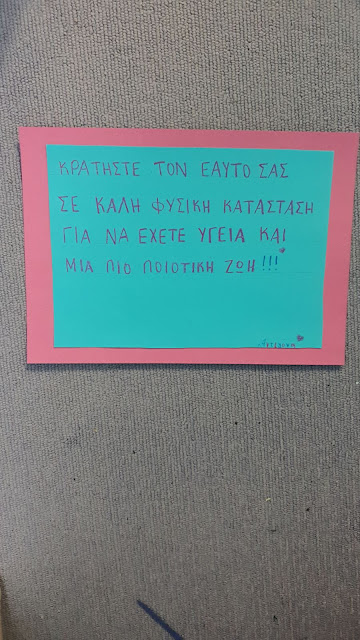 ΚΡΑΤΗΣΤΕ ΤΟΝ ΕΑΥΤΟ ΣΑΣ
ΣΕ ΚΑΛΗ ΦΥΣΙΚΗ ΚΑΤΑΣΤΑΣΗ
ΓΙΑ ΝΑ ΕΧΕΤΕ ΥΓΕΙΑ ΚΑΙ
ΜΙΑ ΠΙΟ ΠΟΙΟΤΙΚΗ ΖΩΗ!!!